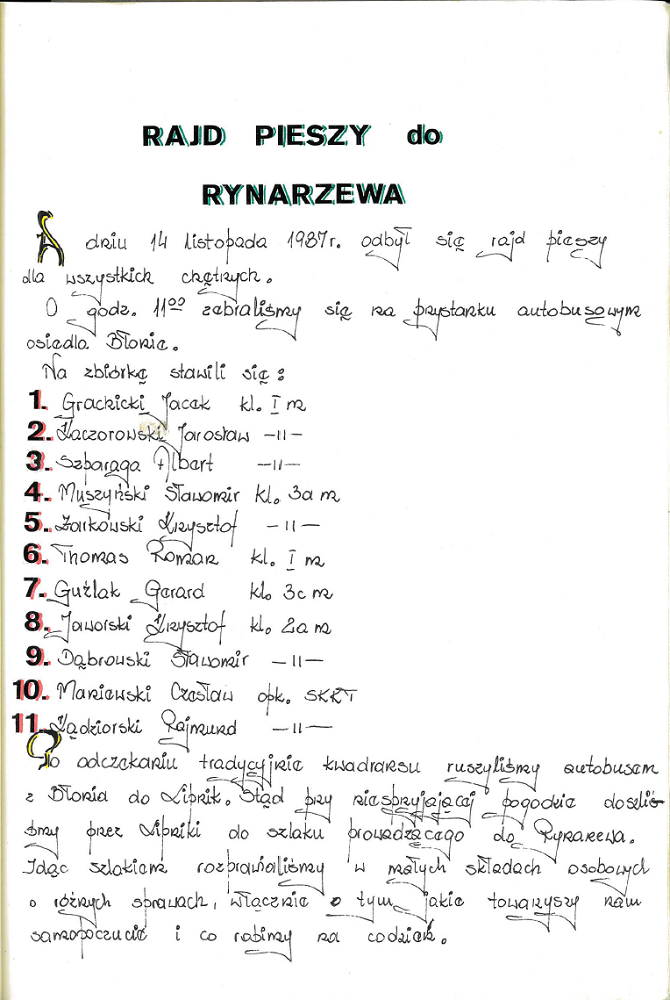 RAJD PIESZY do
RYNARZEWA
W dniu 14 listopada 1987r. odbył się rajd pieszy
dla wszystkich chętnych.
O godz. 11⁰⁰ zebraliśmy się na przystanku autobusowym
osiedla Błonie.
Na zbiórkę stawili się:
1. Gracki Jacek kl. I m
2. Kaczorowski Jarosław -II-
3. Szparaga Albert -II-
4. Muszyński Sławomir kl. 3a m
5. Żarkowski Krzysztof -II-
6. Thomas Roman kl. I m
7. Guźlak Gerard kl. 3c m
8. Jaworski Krzysztof kl. 2a m
9. Dąbrowski Sławomir -II-
10. Maniewski Czesław opk. SKKT
11. Kądziorski Rajmund -II-
Po odczekaniu tradycyjnie kwadransu ruszyliśmy autobusem
z Błonia do Lipnik. Stąd przy niesprzyjającej pogodzie doszliś-
śmy przez Lipniki do szlaku prowadzącego do Rynarzewa.
Idąc szlakiem rozprawialiśmy w małych składach osobowych
o różnych sprawach, włącznie o tym, jakie towarzyszy nam
samopoczucie i co robimy na codzień.